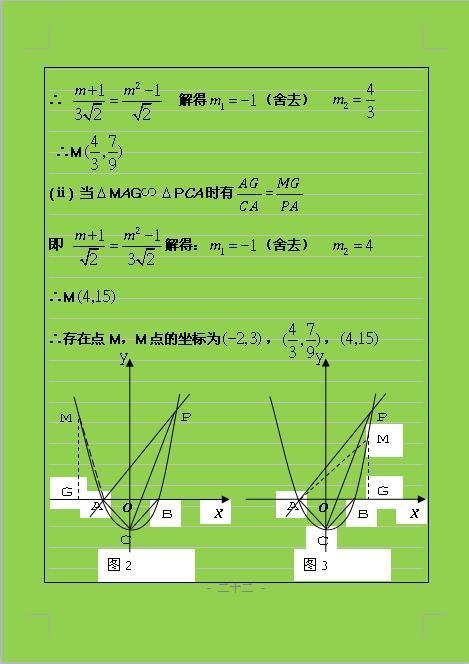 ∴ (m+1)/(3√2) = (m²−1)/√2 解得 m₁=−1（舍去） m₂=4/3
∴M(4/3, 7/9)
(ⅱ) 当△MAG∽△PCA时有 AG/CA = MG/PA
即 (m+1)/√2 = (m²−1)/(3√2) 解得: m₁=−1（舍去） m₂=4
∴M(4,15)
∴存在点 M，M 点的坐标为(−2,3)，(4/3, 7/9)，(4,15)
y
M
P
G
A
O
B
x
C
图 2
y
P
M
A
O
B
G
x
C
图 3
- 二十二 -